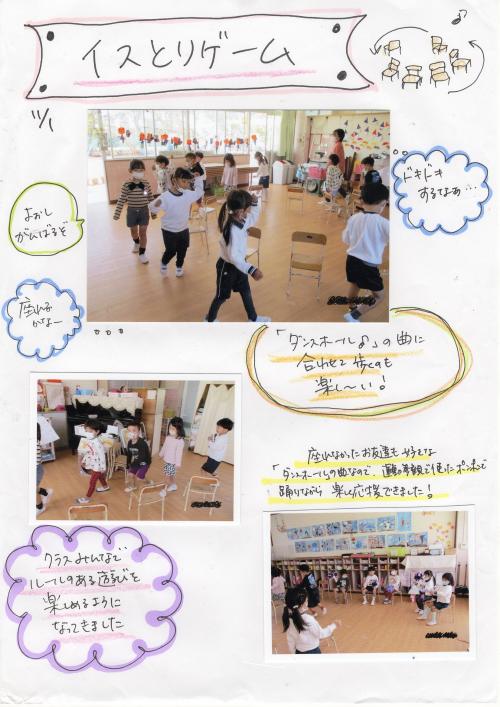 イスとりゲーム
11/1
ドキドキ
するなぁ…
よおし
がんばるぞ
座れる
かなー
「ダンスホール♪」の曲に
合わせて歩くのも
楽し〜い!
座れなかったお友達も好きな
「ダンスホール」の曲なので、運動会で使ったポンポンで
踊りながら楽しく応援できました!
クラスみんなで
ルールのある遊びを
楽しめるように
なってきました